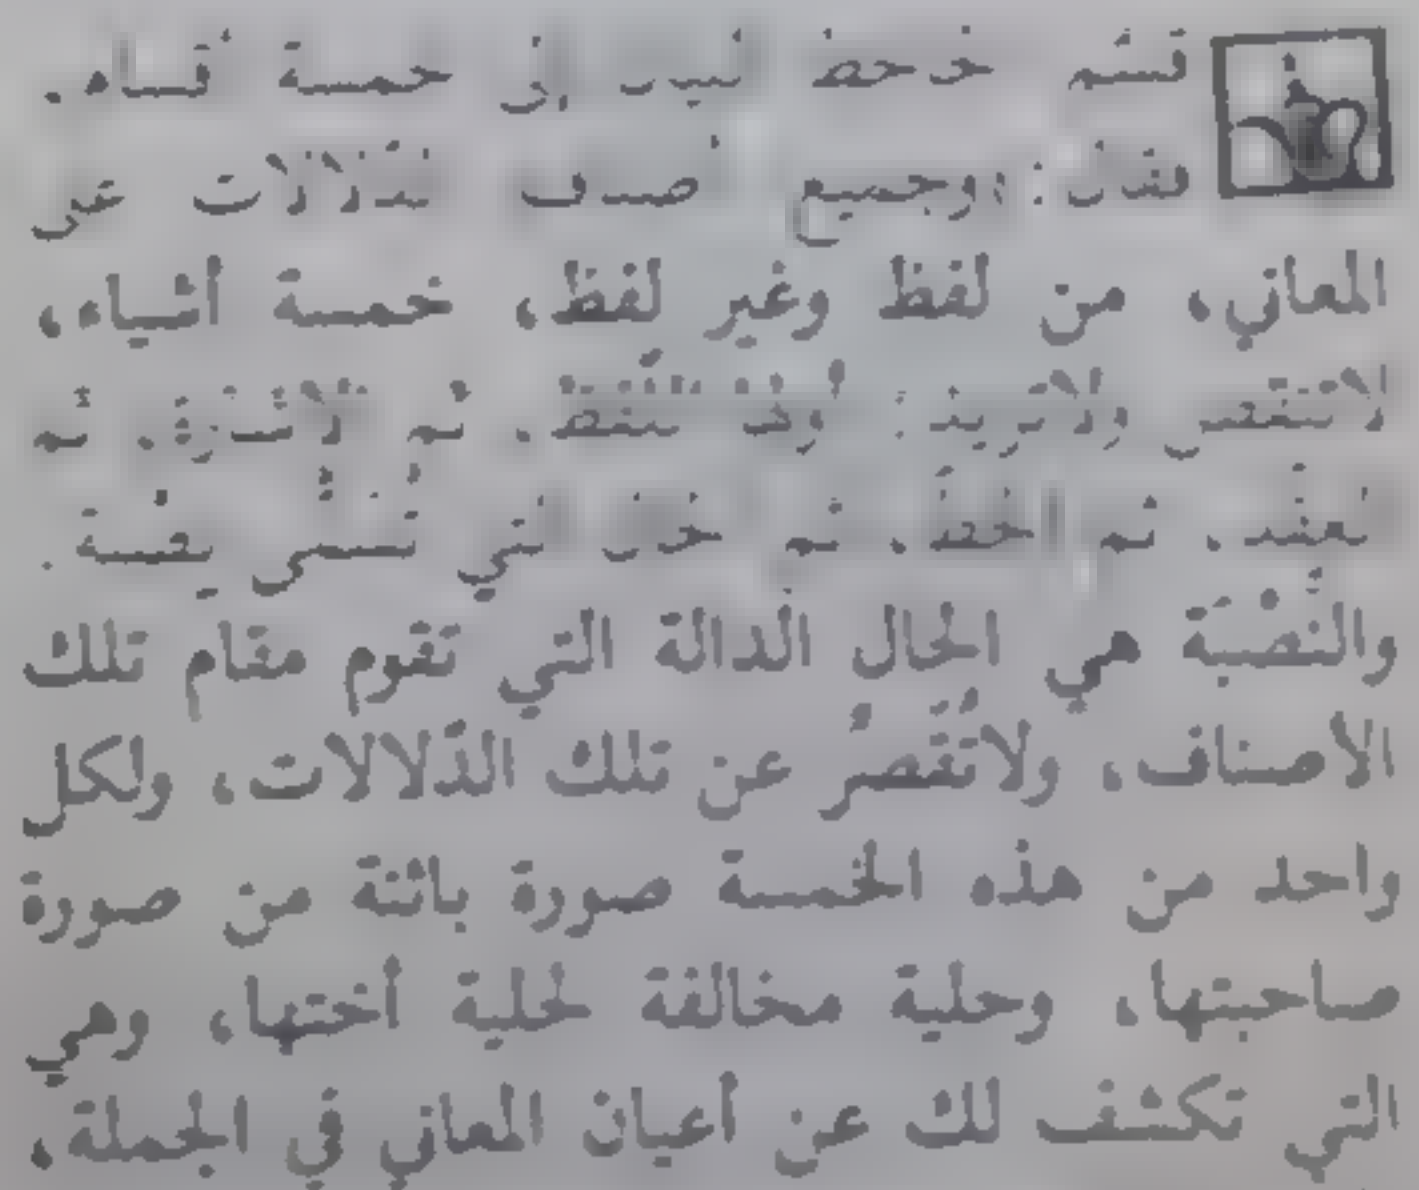 قسّم الجاحظ البيان إلى خمسة أقسام،
فقال: «وجميع أصناف الدّلالات على
المعاني، من لفظ وغير لفظ، خمسة أشياء،
لاتنقص ولاتزيد: أولها اللفظ، ثم الإشارة، ثم
العقد، ثم الخط، ثم الحال التي تُسَمَّى نِصْبة.
والنِّصْبَة هي الحال الدالة التي تقوم مقام تلك
الأصناف، ولاتُقَصِّرُ عن تلك الدّلالات، ولكل
واحد من هذه الخمسة صورة بائنة من صورة
صاحبتها، وحلية مخالفة لحلية أختها، وهي
التي تكشف لك عن أعيان المعاني في الجملة،